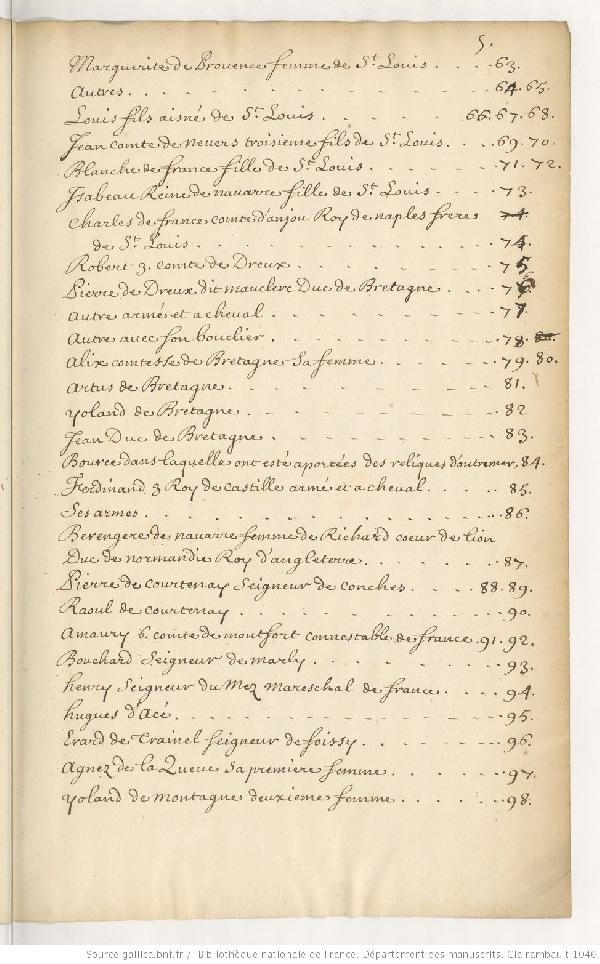 5.
Marguerite de Provence femme de St. Louis . . . . 63.
Autres . . . . . . . . . . 64. 65.
Louis fils aisné de St. Louis . . . . . 66. 67. 68.
Jean comte de nevers troisieme fils de St. Louis . . . 69. 70.
Blanche de france fille de St. Louis . . . . . 71. 72.
Isabeau Reine de navarre fille de St. Louis . . . 73.
Charles de france comte d'anjou Roy de naples freres 74
de St. Louis . . . . . . . . . . 74.
Robert 3. comte de Dreux . . . . . . . 75
Pierre de Dreux dit mauclerc Duc de Bretagne . . . 76
autre armé et a cheval . . . . . . . 77
Autre avec son bouclier . . . . . . . 78. 80.
Alix comtesse de Bretagne sa femme . . . . . 79. 80.
Artus de Bretagne . . . . . . . . . 81.
yoland de Bretagne . . . . . . . . . 82
Jean Duc de Bretagne . . . . . . . . 83.
Bource dans laquelle ont esté aportées des reliques d'outremer. 84.
Ferdinand 3 Roy de castille armé et a cheval . . . . 85.
Ses armes . . . . . . . . . . . 86.
Berengere de navarre femme de Richard coeur de lion
Duc de normandie Roy d'angleterre . . . . . . 87.
Pierre de courtenay Seigneur de conches . . . . 88. 89.
Raoul de courtenay . . . . . . . . . 90.
Amaury 6. comte de montfort connestable de france . 91. 92.
Bouchard Seigneur de marly . . . . . . . 93.
henry Seigneur du Mez Mareschal de france . . . . 94.
hugues d'Acé . . . . . . . . . . 95.
Erard de Trainel seigneur de foissy . . . . . 96.
Agnez de la Queue sa premiere femme . . . . . 97.
yoland de montagne deuxieme femme . . . . . 98.
Source gallica.bnf.fr / Bibliothèque nationale de France. Département des manuscrits. Clairambault 1046